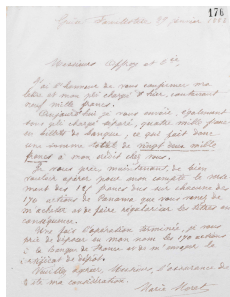 176
Messieurs Offroy et Cie.
J'ai l'honneur de vous confirmer ma
lettre et mon pli chargé d'hier, contenant
mille francs.
Aujourd'hui je vous envoie, également
sous pli chargé séparé, quatre mille francs
en billets de banque, ce qui fait donc
une somme totale de vingt deux mille
francs à mon crédit chez vous.
Je vous prie, maintenant, de bien
vouloir opérer pour mon compte le verse-
ment des 125 francs dus sur chacune des
170 actions de Panama que vous venez de
m'acheter et de faire régulariser les titres en
conséquence.
Une fois l'opération terminée, je vous
prie de déposer en mon nom les 170 actions
à la Banque de France et de m'envoyer le
certificat de dépôt.
Veuillez agréer, Messieurs, l'assurance de
toute ma considération.
Marie Moret